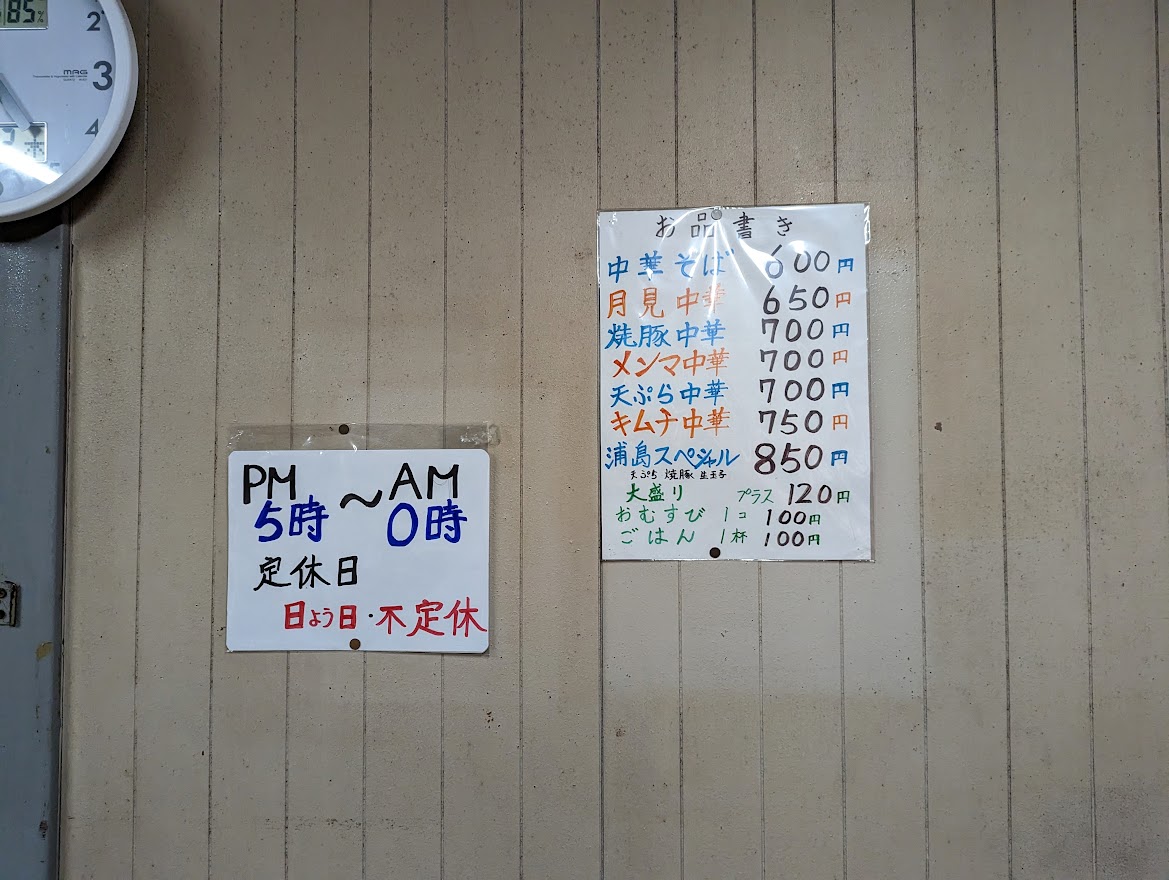 85%
2
MAG
3
4
木
お品書き
中華そば 600円
月見中華 650円
焼豚中華 700円
メンマ中華 700円
天ぷら中華 700円
キムチ中華 750円
浦島スペシャル 850円
天ぷら 焼豚 生玉子
大盛り プラス 120円
おむすび 1コ 100円
ごはん 1杯 100円
PM ~ AM
5時 0時
定休日
日よう日・不定休